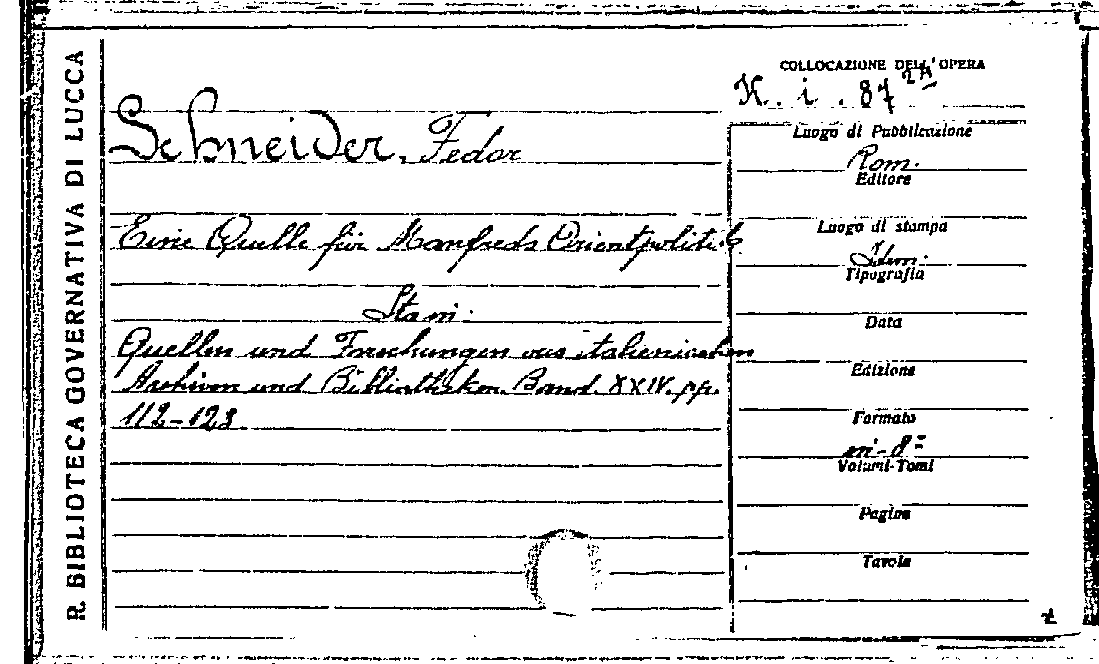 R. BIBLIOTECA GOVERNATIVA DI LUCCA
COLLOCAZIONE DELL'OPERA
K. i. 87 2A
Schneider, Fedor
Eine Quelle für Manfreds Orientpolitik
Quellen und Forschungen aus italienischen
Archiven und Bibliotheken. Band. XXIV. pp.
112-123
Luogo di Pubblicazione
Rom.
Editore
Luogo di stampa
Idem.
Tipografia
Data
Edizione
Formato
in-8º
Volumi-Tomi
Pagine
Tavole